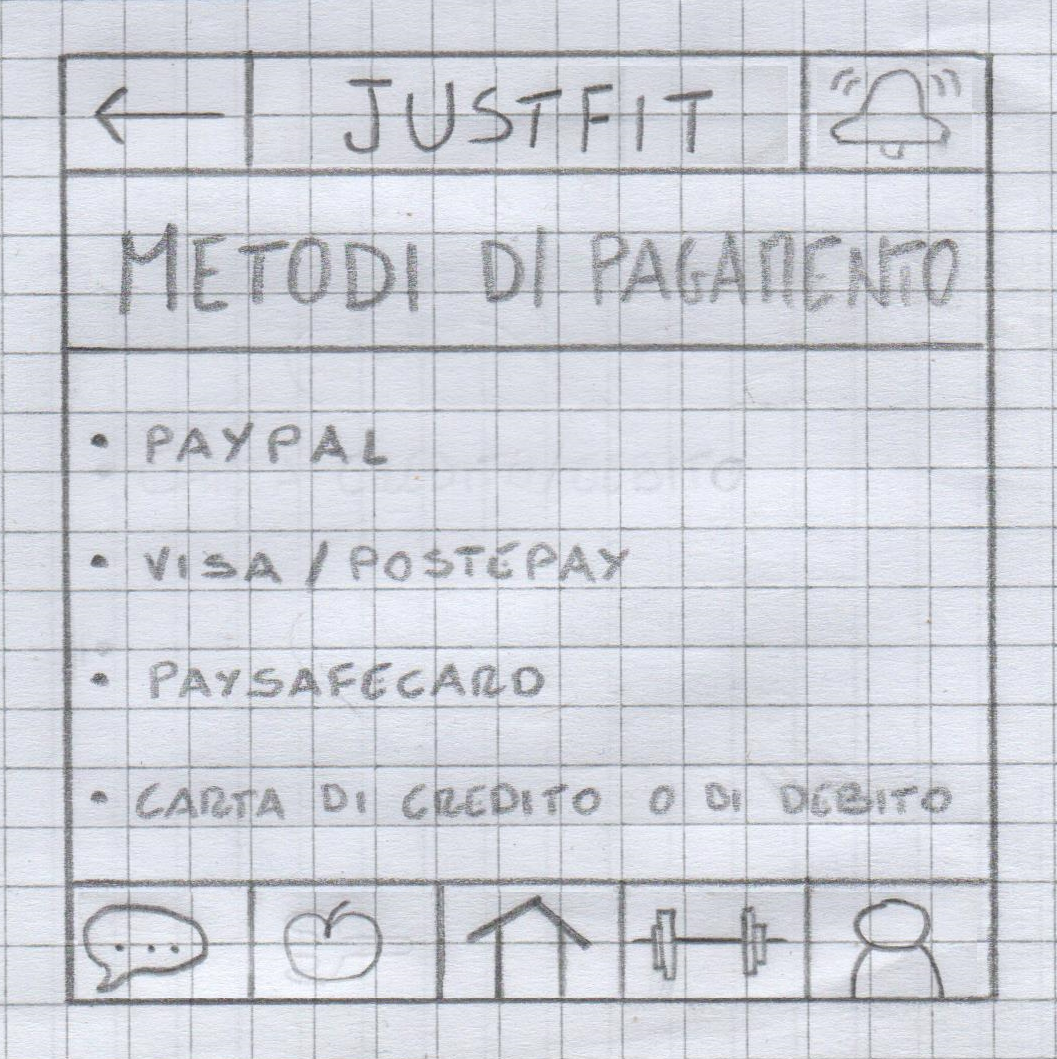 JUSTFIT
METODI DI PAGAMENTO
• PAYPAL
• VISA / POSTEPAY
• PAYSAFECARD
• CARTA DI CREDITO O DI DEBITO